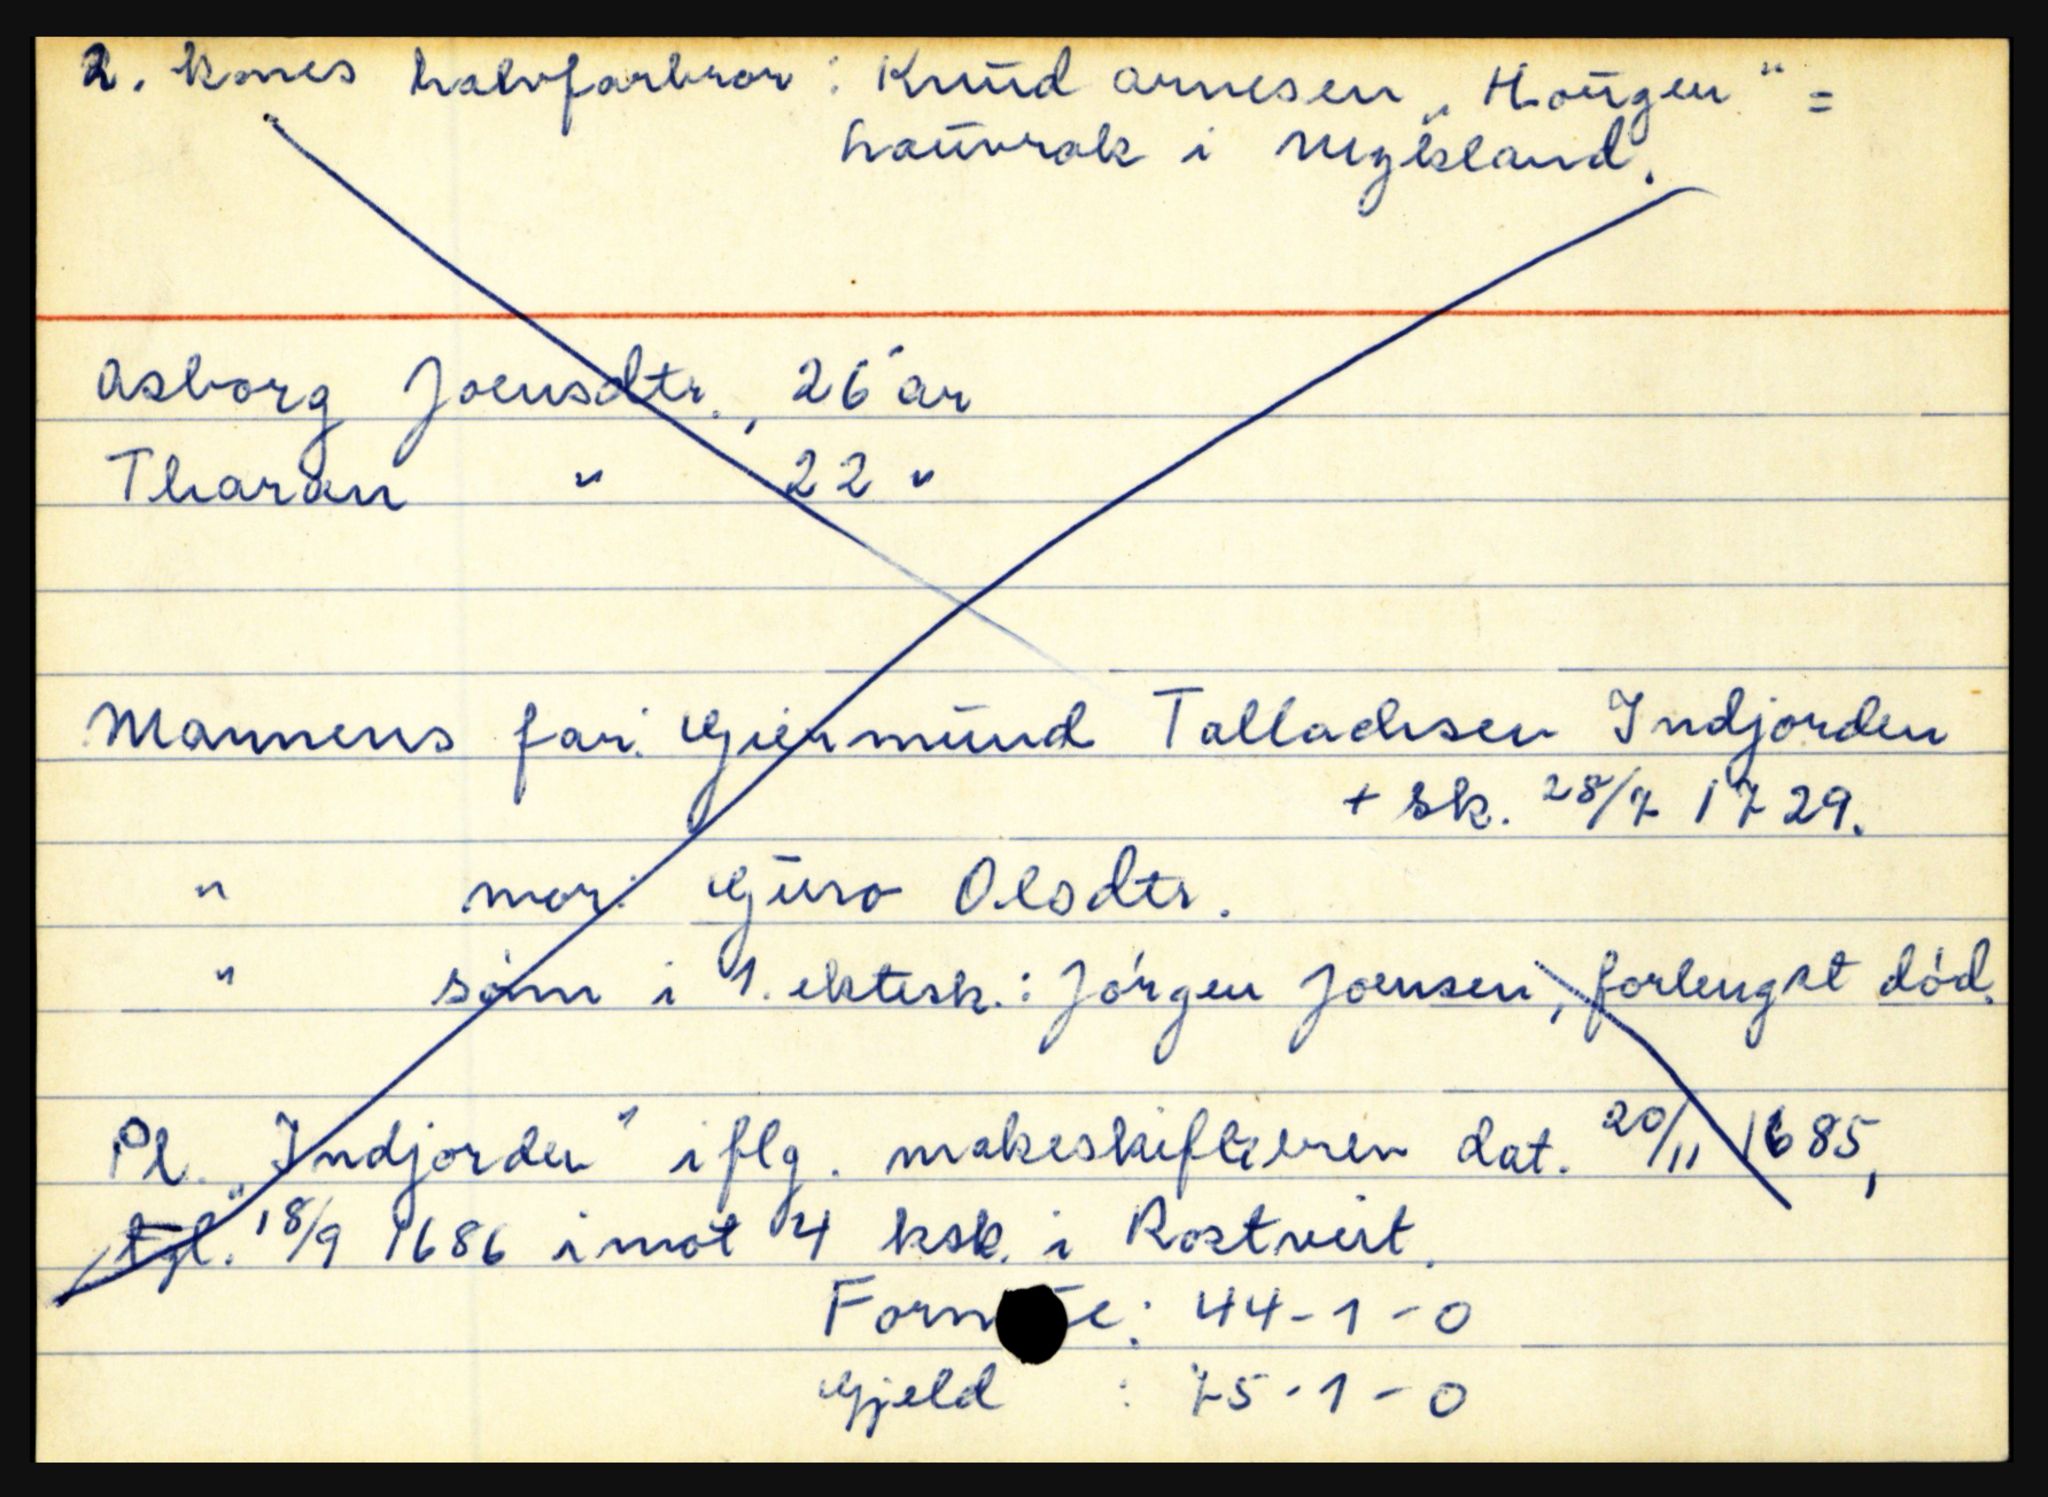 2. kones halvfarbror: Knud Arnesen „Hougen" =
Hauvrak i Mykland.
Asborg Joensdtr., 26 år
Tharan " 22 "
Mannens far: Giermund Talladsen Indjorden
+ sk. 28/7 1729.
" mor: Guro Olsdtr.
" søn i 1. ektesk.: Jørgen Joensen, forlengst död.
Pl. „Indjorden" iflg. makeskiftebrev dat. 20/11 1685,
tgl. 18/9 1686 imot 4 ksk. i Rostveit.
Formue: 44-1-0
Gjeld : 75-1-0